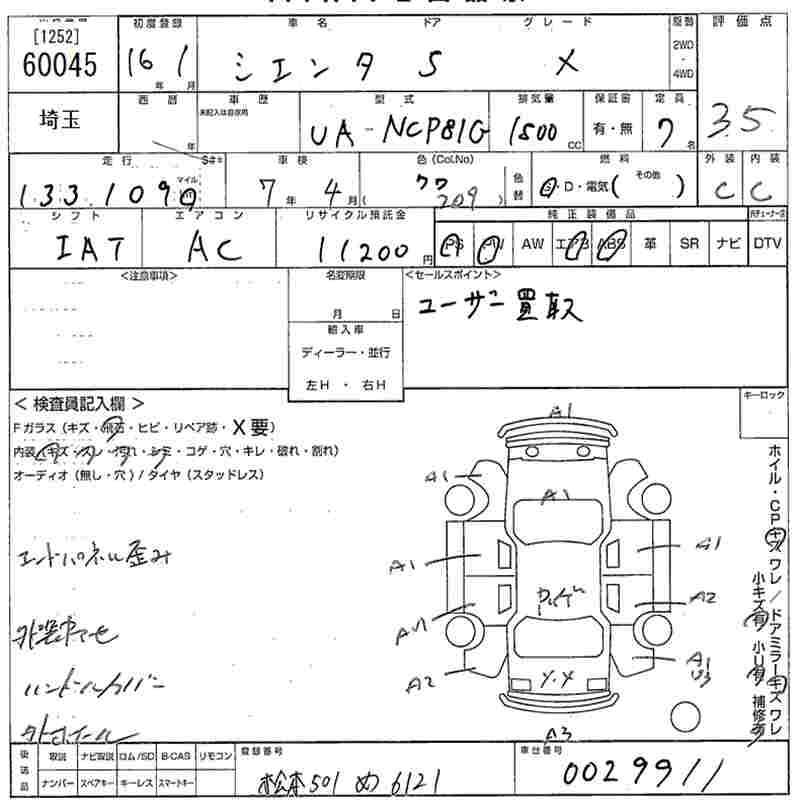 [1252]
60045
初度登録 車名 ドア グレード 駆動 評価点
16年 1月 シエンタ 5 X 2WD・4WD
埼玉
西暦 年 車歴 未記入は自家用 型式 排気量 保証書 定員
UA-NCP81G 1500CC 有・無 7名 3.5
走行 マイル S#キ 車検 色(Col.No) 色替 燃料 外装 内装
133,109 7年 4月 (クワ 209) G・D・電気(その他) C C
シフト エアコン リサイクル預託金 純正装備品
IAT AC 11200円 PS PW AW エアB ABS 革 SR ナビ DTV
<注意事項> 名変期限 <セールスポイント>
月 日 ユーザー買取
輸入車
ディーラー・並行
左H・右H
<検査員記入欄> キーロック
Fガラス(キズ・飛石・ヒビ・リペア跡・X要)
内装(キズ・スレ・汚れ・シミ・コゲ・穴・キレ・破れ・割れ)
オーディオ(無し・穴)/タイヤ(スタッドレス)
A1
A1
A1
エンドパネル歪み
A1
A1
A2
ハンドルカバー
A2
A1
U3
A3
ホイル・CPキズワレ/ドアミラーキズワレ
小キズ有 小U有 補修有
後送品 取説 ナビ取説 ロム/SD B-CAS リモコン 登録番号 車台番号
ナンバー スペアキー キーレス スマートキー 松本501 め 6121 0029911